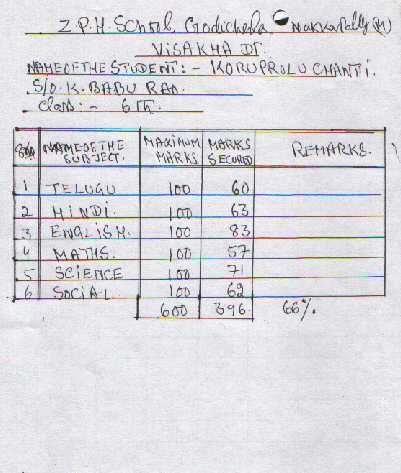 Z.P.H. School Godicherla Nakkapally (M)
VISAKHA DT.
NAME OF THE STUDENT:- KORUPROLU CHANTI.
S/O.K. BABU RAO.
Class:- 6th.
S/No NAME OF THE SUBJECT. MAXIMUM MARKS MARKS SECURED REMARKS.
1 TELUGU 100 60
2 HINDI. 100 63
3 ENGLISH. 100 83
4 MATHS. 100 57
5 SCIENCE 100 71
6 SOCIAL 100 62
600 396 66%.